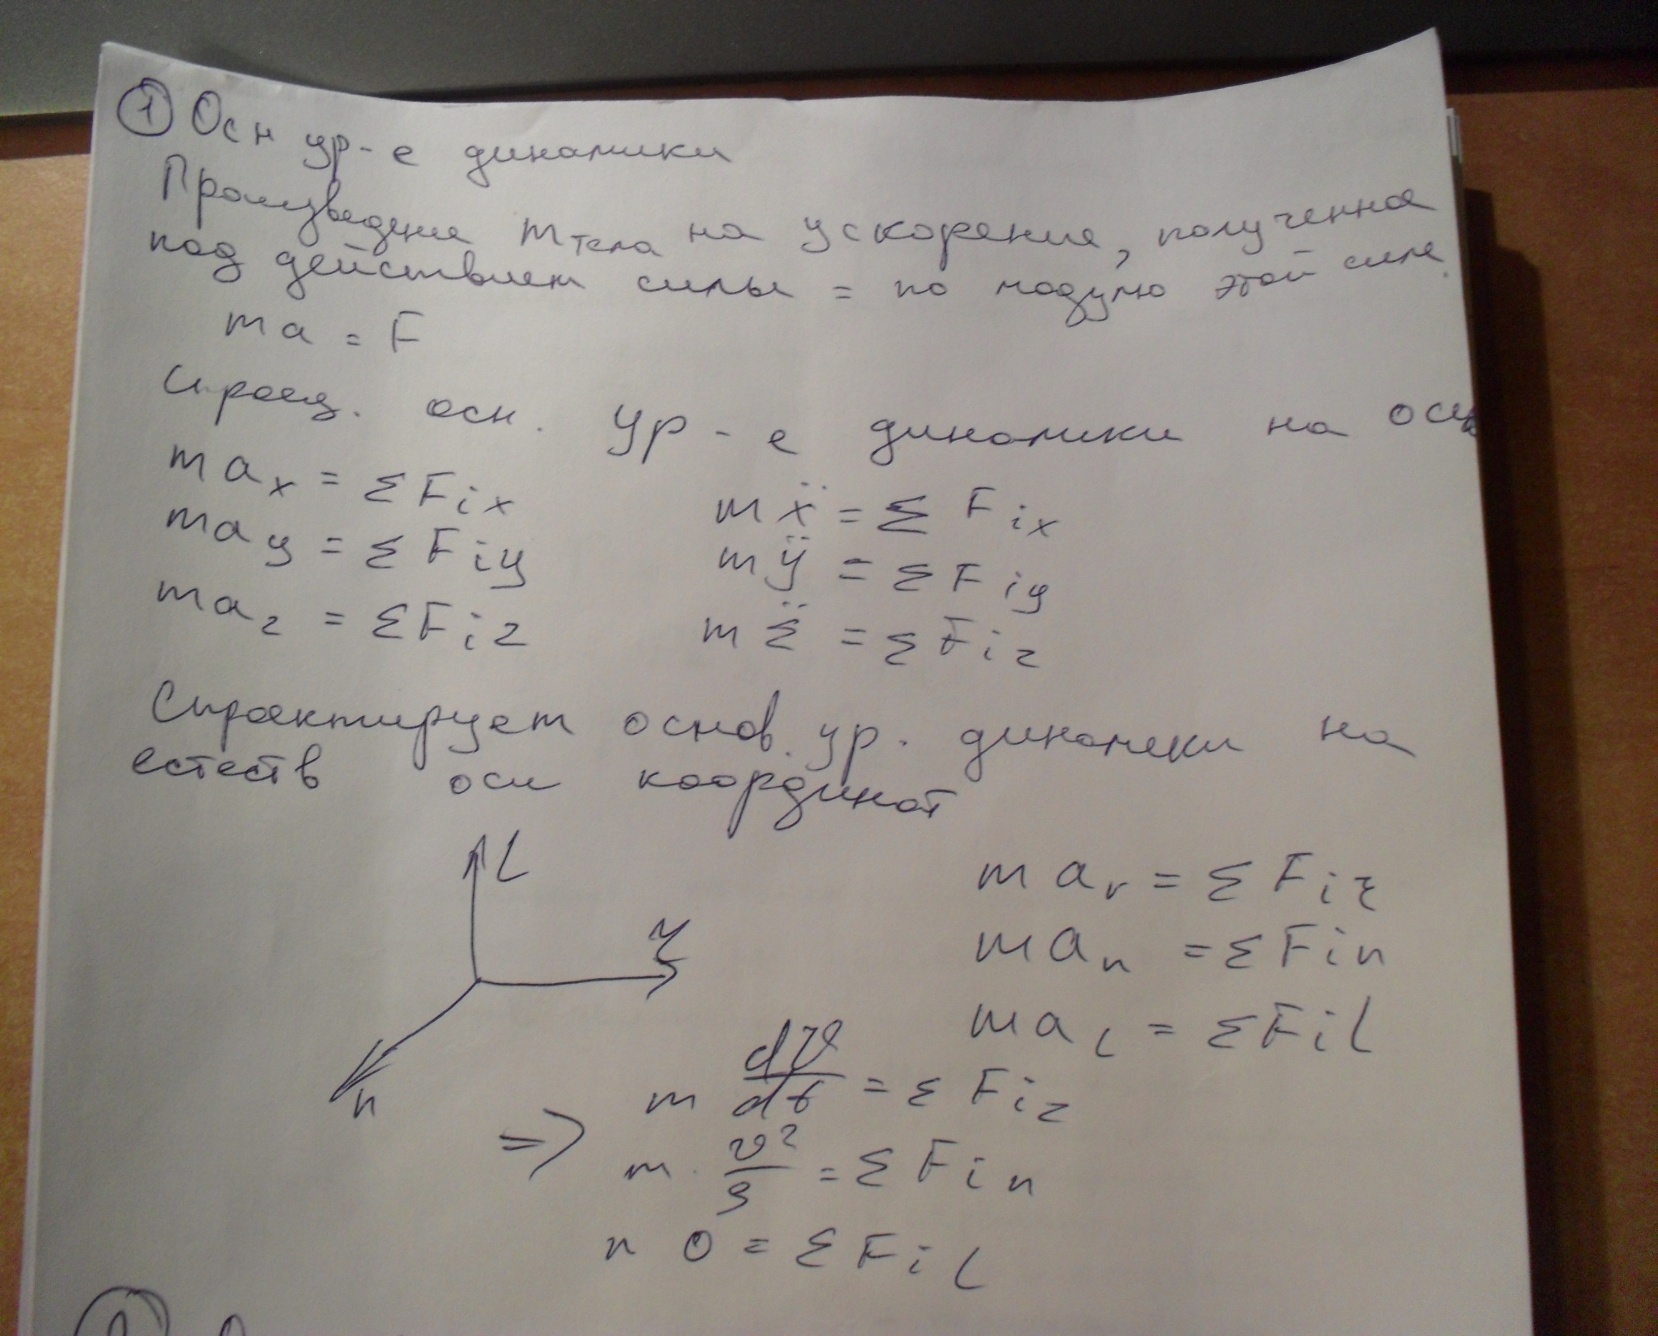 ① Осн ур-е динамики
Произведение m тела на ускорение, полученное
под действием силы = по модулю этой силе.
ma = F
Спроец. осн. ур-е динамики на оси
ma_x = ΣF_ix    mẍ = ΣF_ix
ma_y = ΣF_iy    mÿ = ΣF_iy
ma_z = ΣF_iz    mz̈ = ΣF_iz
Спроектирует основ. ур. динамеки на
естеств оси координат
L
τ
n
ma_τ = ΣF_iτ
ma_n = ΣF_in
ma_L = ΣF_iL
m dϑ/dt = ΣF_iτ
=> m · ϑ²/ρ = ΣF_in
n 0 = ΣF_iL